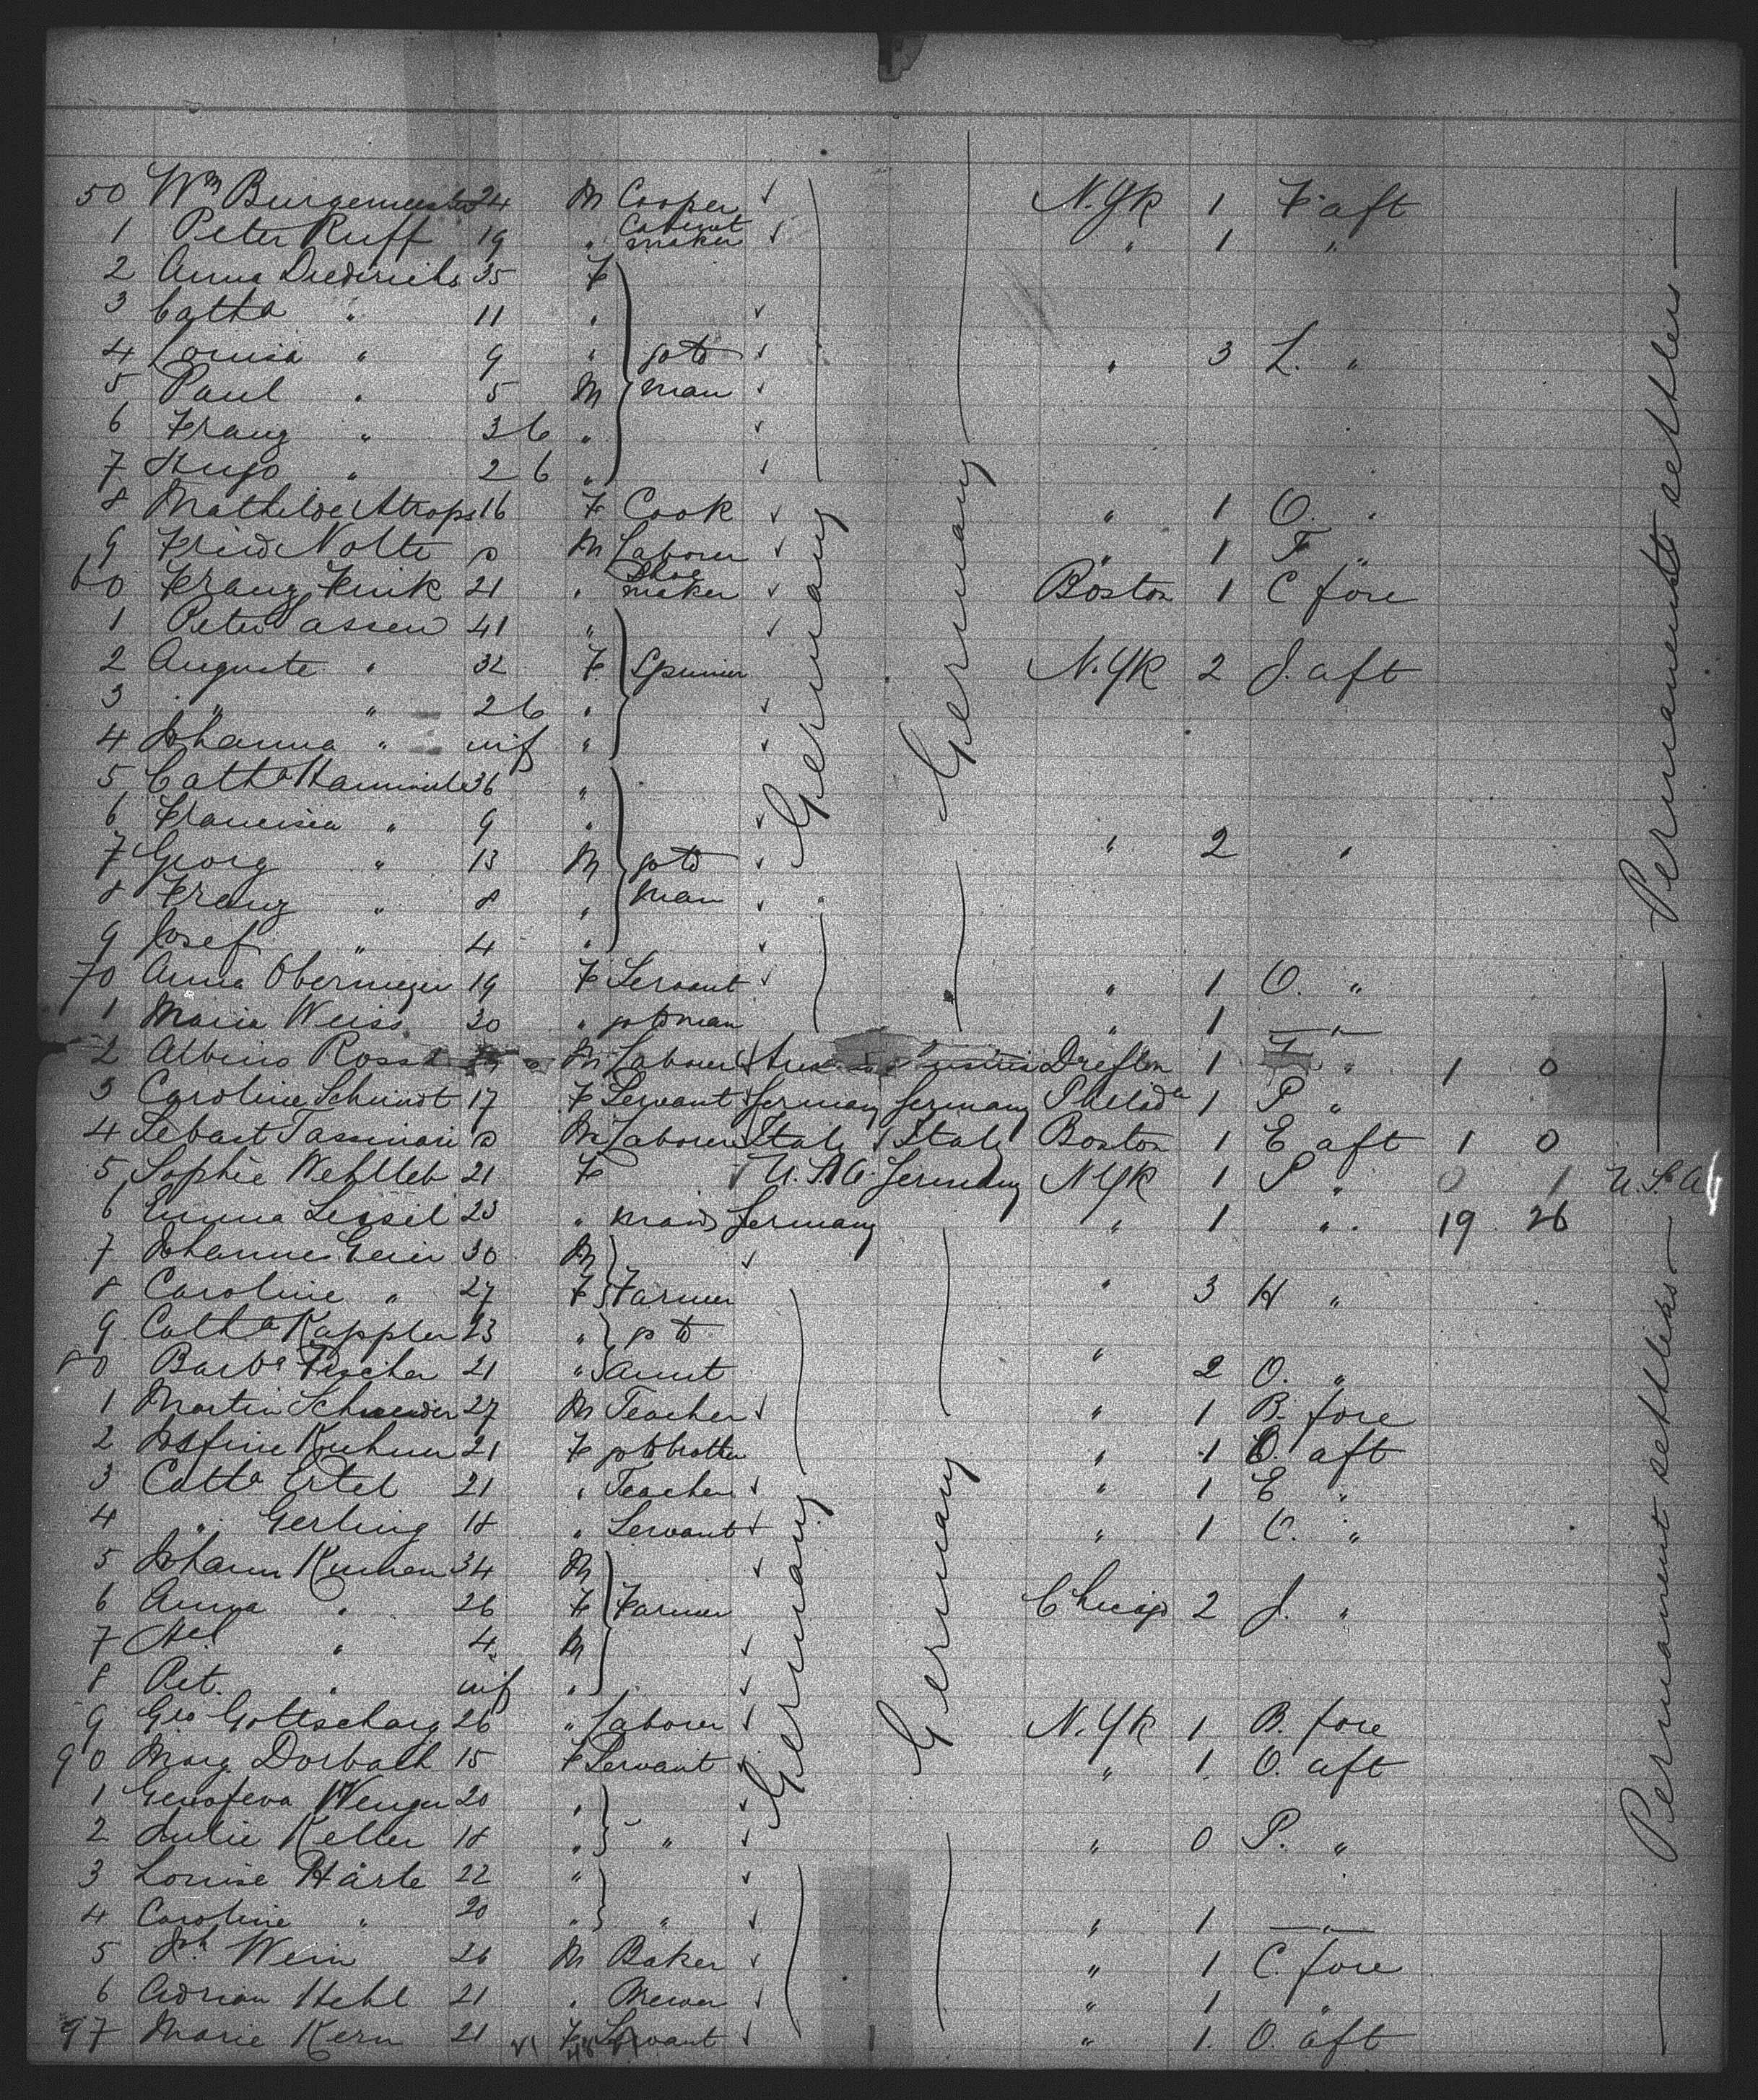 50 Wm Burgemeister 24 M Cooper ✓ N.Yk 1 F. aft
1 Peter Ruff 19 " Cabinet maker ✓ " 1 "
2 Anna Diedrichs 35 F
3 Catha " 11 " ✓
4 Louisa " 9 " go to ✓ " 3 L. "
5 Paul " 5 M man ✓
6 Franz " 3 6 " ✓
7 Hugo " 2 6 " ✓
8 Mathilde 16 F Cook ✓ " 1 O. "
9 Fried Nolte M Laborer ✓ " 1 F "
60 Franz Fink 21 " Shoe maker ✓ Boston 1 C fore
1 Peter Lassen 41 " ✓
2 Auguste " 32 F N.Yk 2 J. aft
3 " " 2 6 " ✓
4 Johanna " inf " ✓
5 Catha 36 "
6 Francisca " 9 " ✓
7 Georg " 13 M go to ✓ " 2 "
8 Franz " 8 " man ✓
9 Josef " 4 " ✓
70 Anna Obermeyer 19 F Servant ✓ " 1 O. "
1 Maria Weiss 20 " go to man " 1 — " —
2 Albino Ross M Laborer 1 F " 1 0
3 Caroline Schmidt 17 F Servant Germany Germany Philada 1 P "
4 Sebast Tassinari M Laborer Italy Italy Boston 1 E aft 1 0
5 Sophie 21 F U.S.A. Germany N.Yk 1 P " 0 1 U.S.A
6 Emma 23 " maid Germany " 1 " 19 26
7 Johannes Geier 30 M ✓
8 Caroline " 27 F Farmer " 3 H "
9 Catha Kappler 23 " go to
80 Barba Fischer 21 " Aunt " 2 O. "
1 Martin Schneider 27 M Teacher ✓ " 1 B. fore
2 Josfine 21 F go to brother " 1 O. aft
3 Catha Ertel 21 " Teacher ✓ " 1 E "
4 " Gerling 18 " Servant ✓ " 1 O. "
5 Johann 34 M ✓
6 Anna " 26 F Farmer Chicago 2 J. "
7 " 4 M ✓
8 Pet. " inf " ✓
9 Geo 26 " Laborer ✓ N.Yk 1 B. fore
90 Marg Dorbach 15 F Servant ✓ " 1. O. aft
1 Genofeva Wenger 20 " ✓
2 Julie Keller 18 " " ✓ " 0 P. "
3 Louise Härle 22 " ✓
4 Caroline " 20 " " ✓ " 1 — " —
5 Jh Wein 26 M Baker ✓ " 1 C. fore
6 Adrian Hehl 21 " ✓ " 1 "
97 Marie Kern 21 F Servant ✓ " 1. O. aft
Germany
Germany
Permanent settlers
Germany
Germany
Permanent settlers